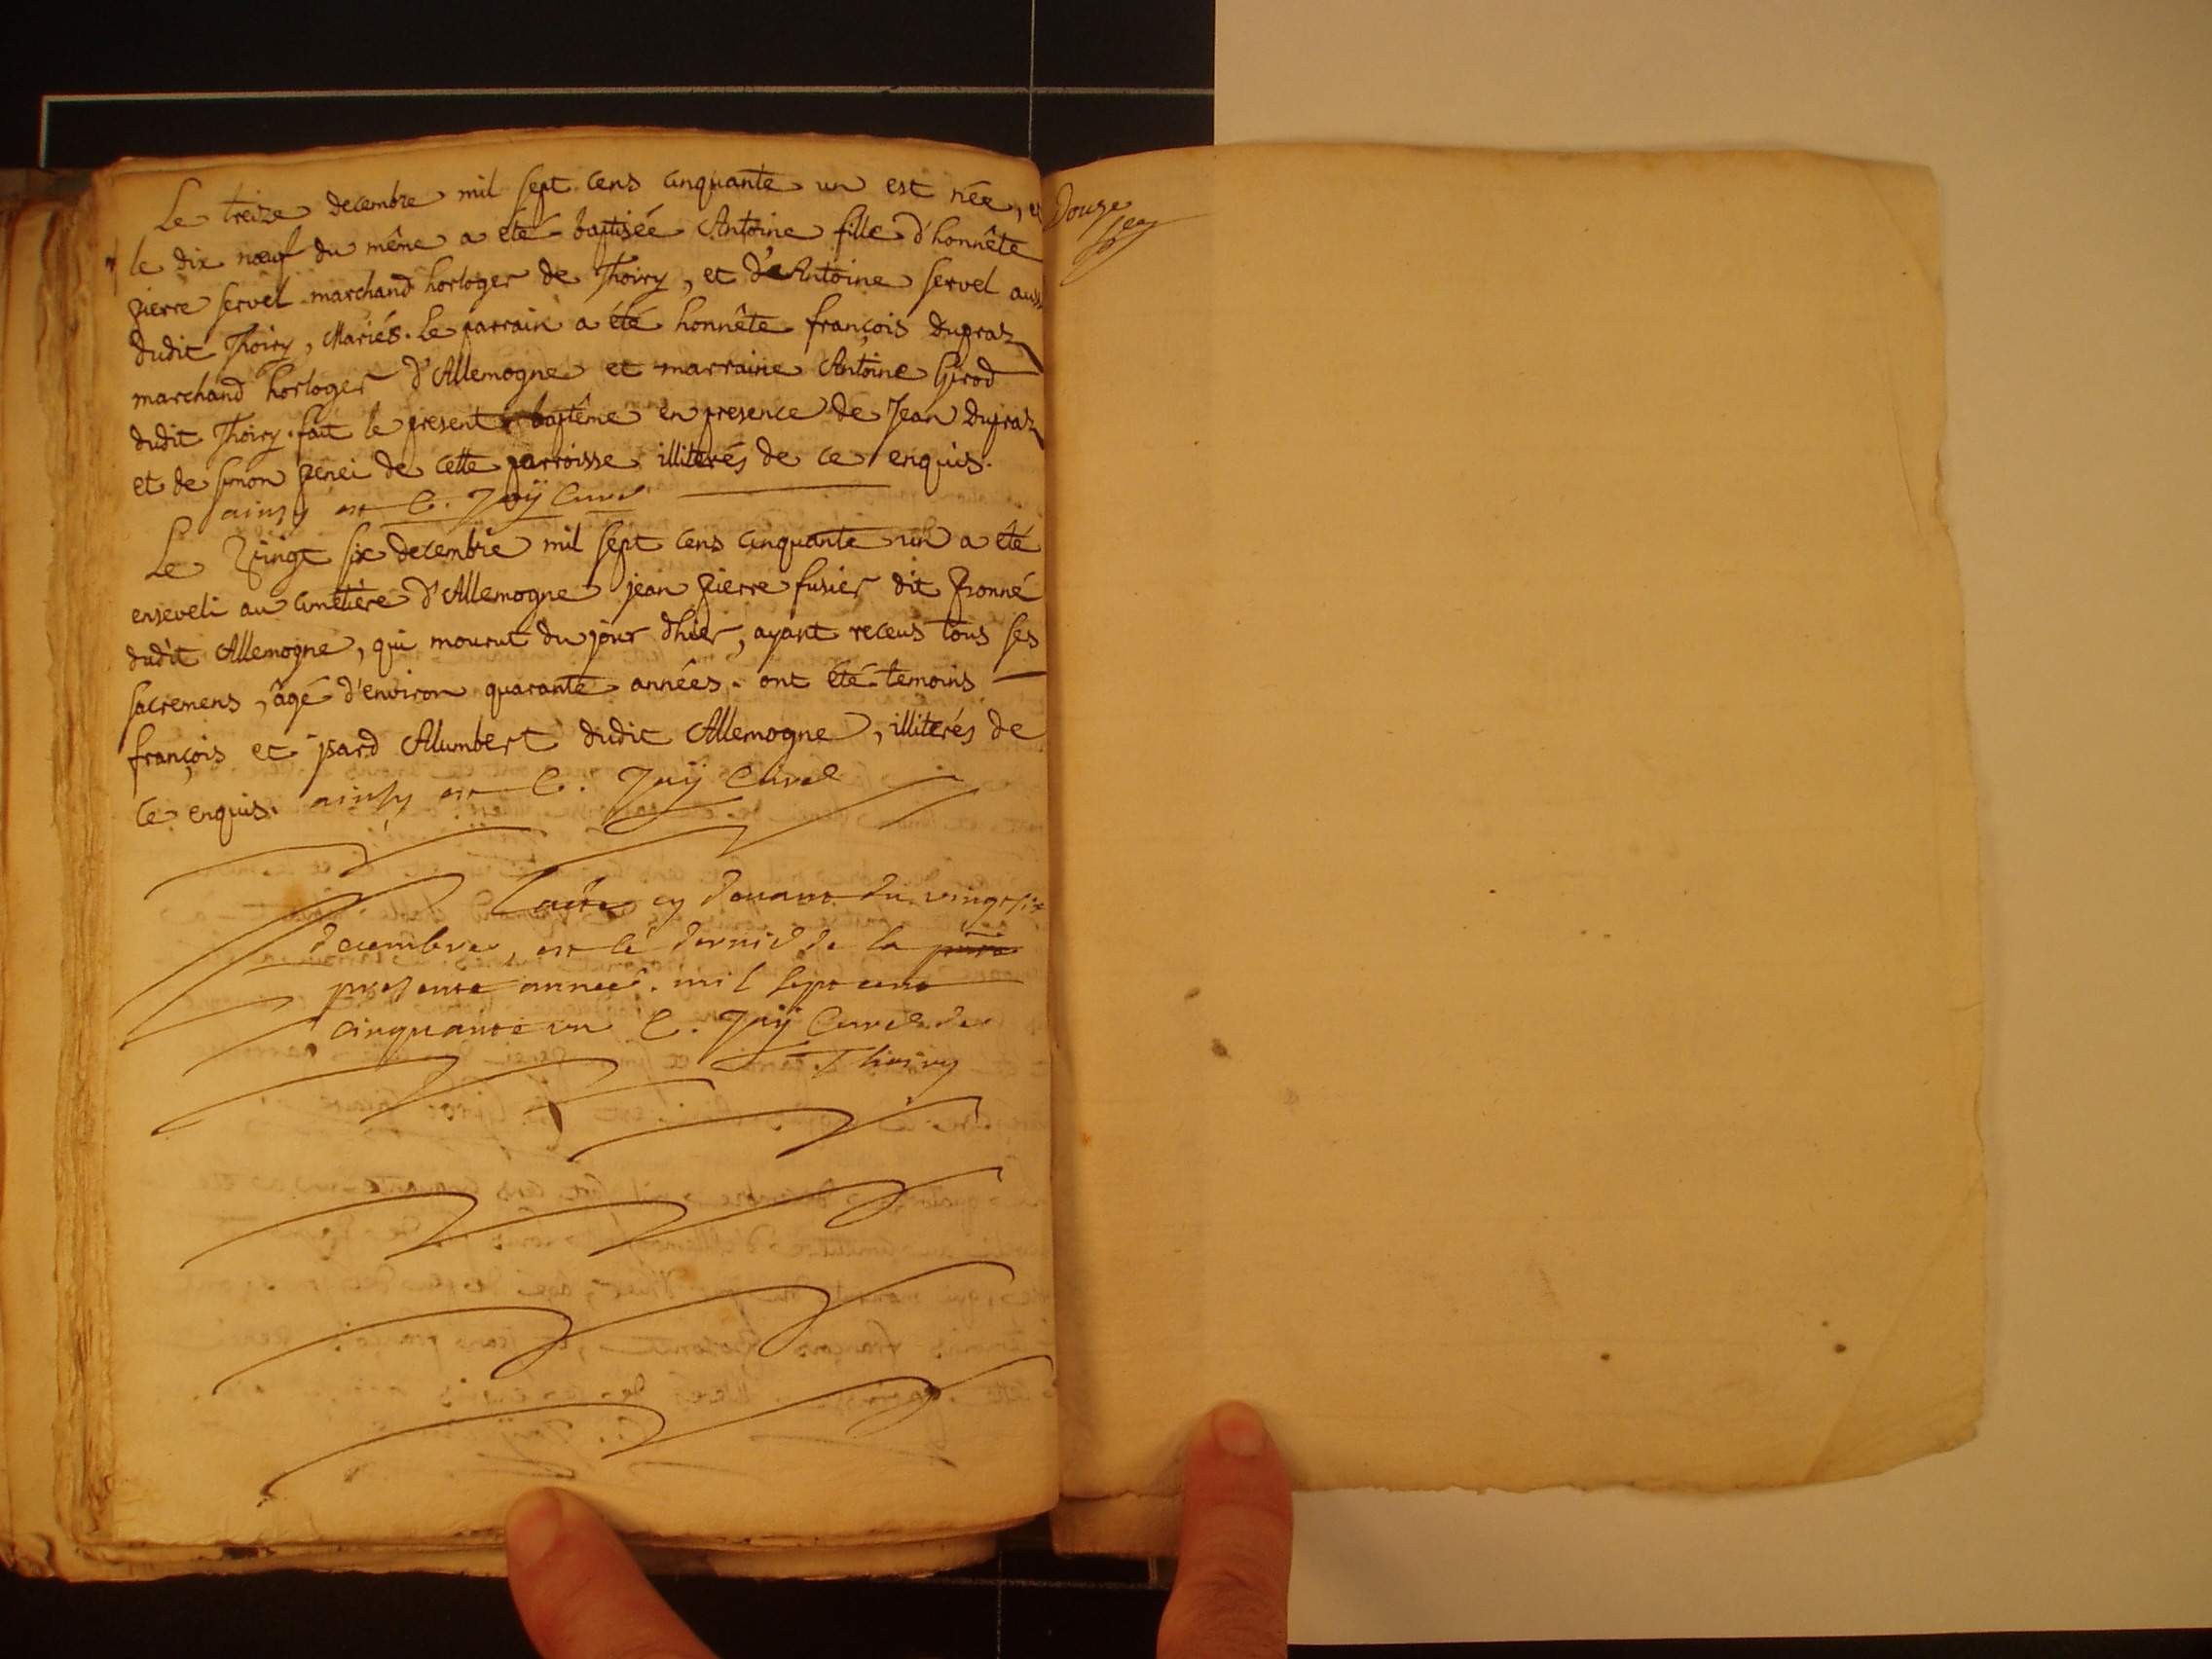 Le treize decembre mil sept cens cinquante un est née, et
le dix nœuf du même a eté baptisée Antoine fille d'honnête
pierre servel marchand horloger de Thoiry, et d'Antoine servel aussi
dudit Thoiry, Mariés. Le parrain a été honnête françois dupraz
marchand horloger d'Allemogne et marraine Antoine Girod
dudit Thoiry. fait le present baptême en presence de Jean dupraz
et de simon penei de cette parroisse illiterés de ce enquis.
ainsy est C. Jaÿ Curé
Le vingt six decembre mil sept cens cinquante un a été
enseveli au cimetière d'Allemogne jean pierre fusier dit
dudit Allemogne, qui mourut du jour d'hier, ayant receus tous ses
sacremens, âgé d'environ quarante années. ont été temoins
françois et Alumbert dudit Allemogne, illiterés de
ce enquis. ainsy est C. Jaÿ Curé
Lacte cy devant du vingt six
decembre, est le dernié de la
presente année. mil sept cent
cinquante un C. Jaÿ Curé de
Thoiry
Douze